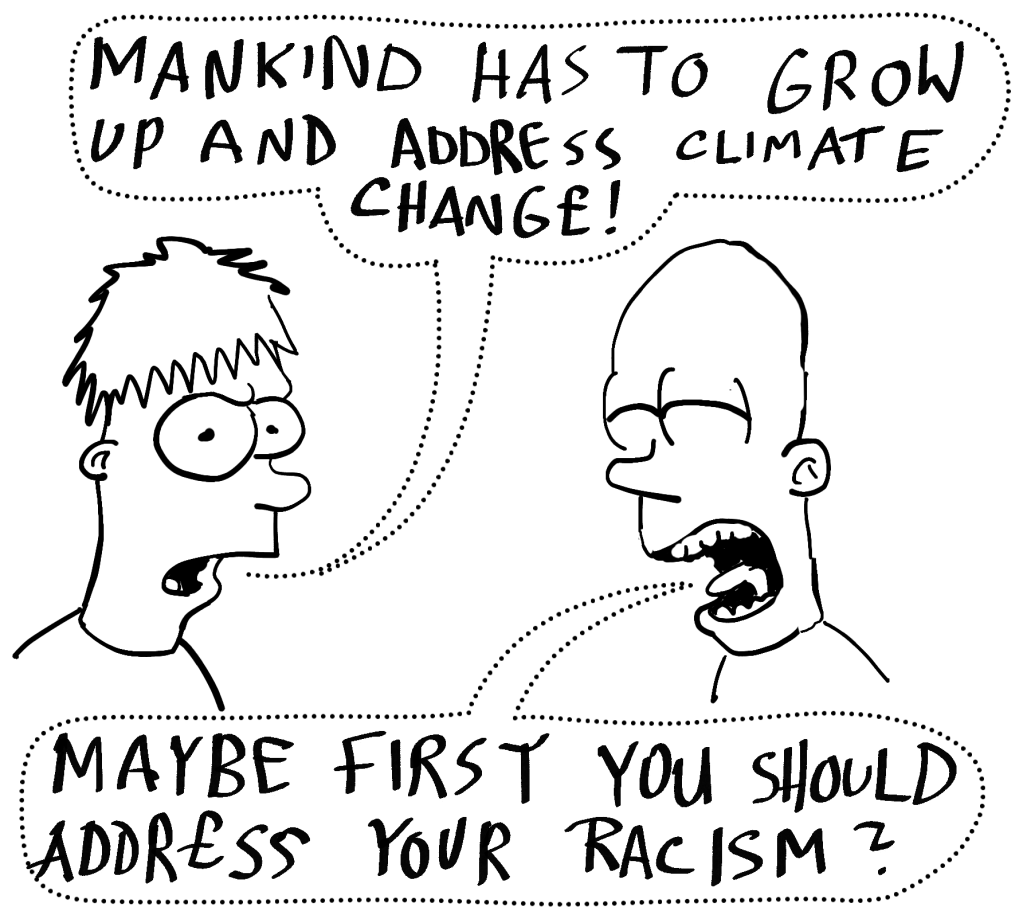 MANKIND HAS TO GROW
UP AND ADDRESS CLIMATE
CHANGE!
MAYBE FIRST YOU SHOULD
ADDRESS YOUR RACISM?